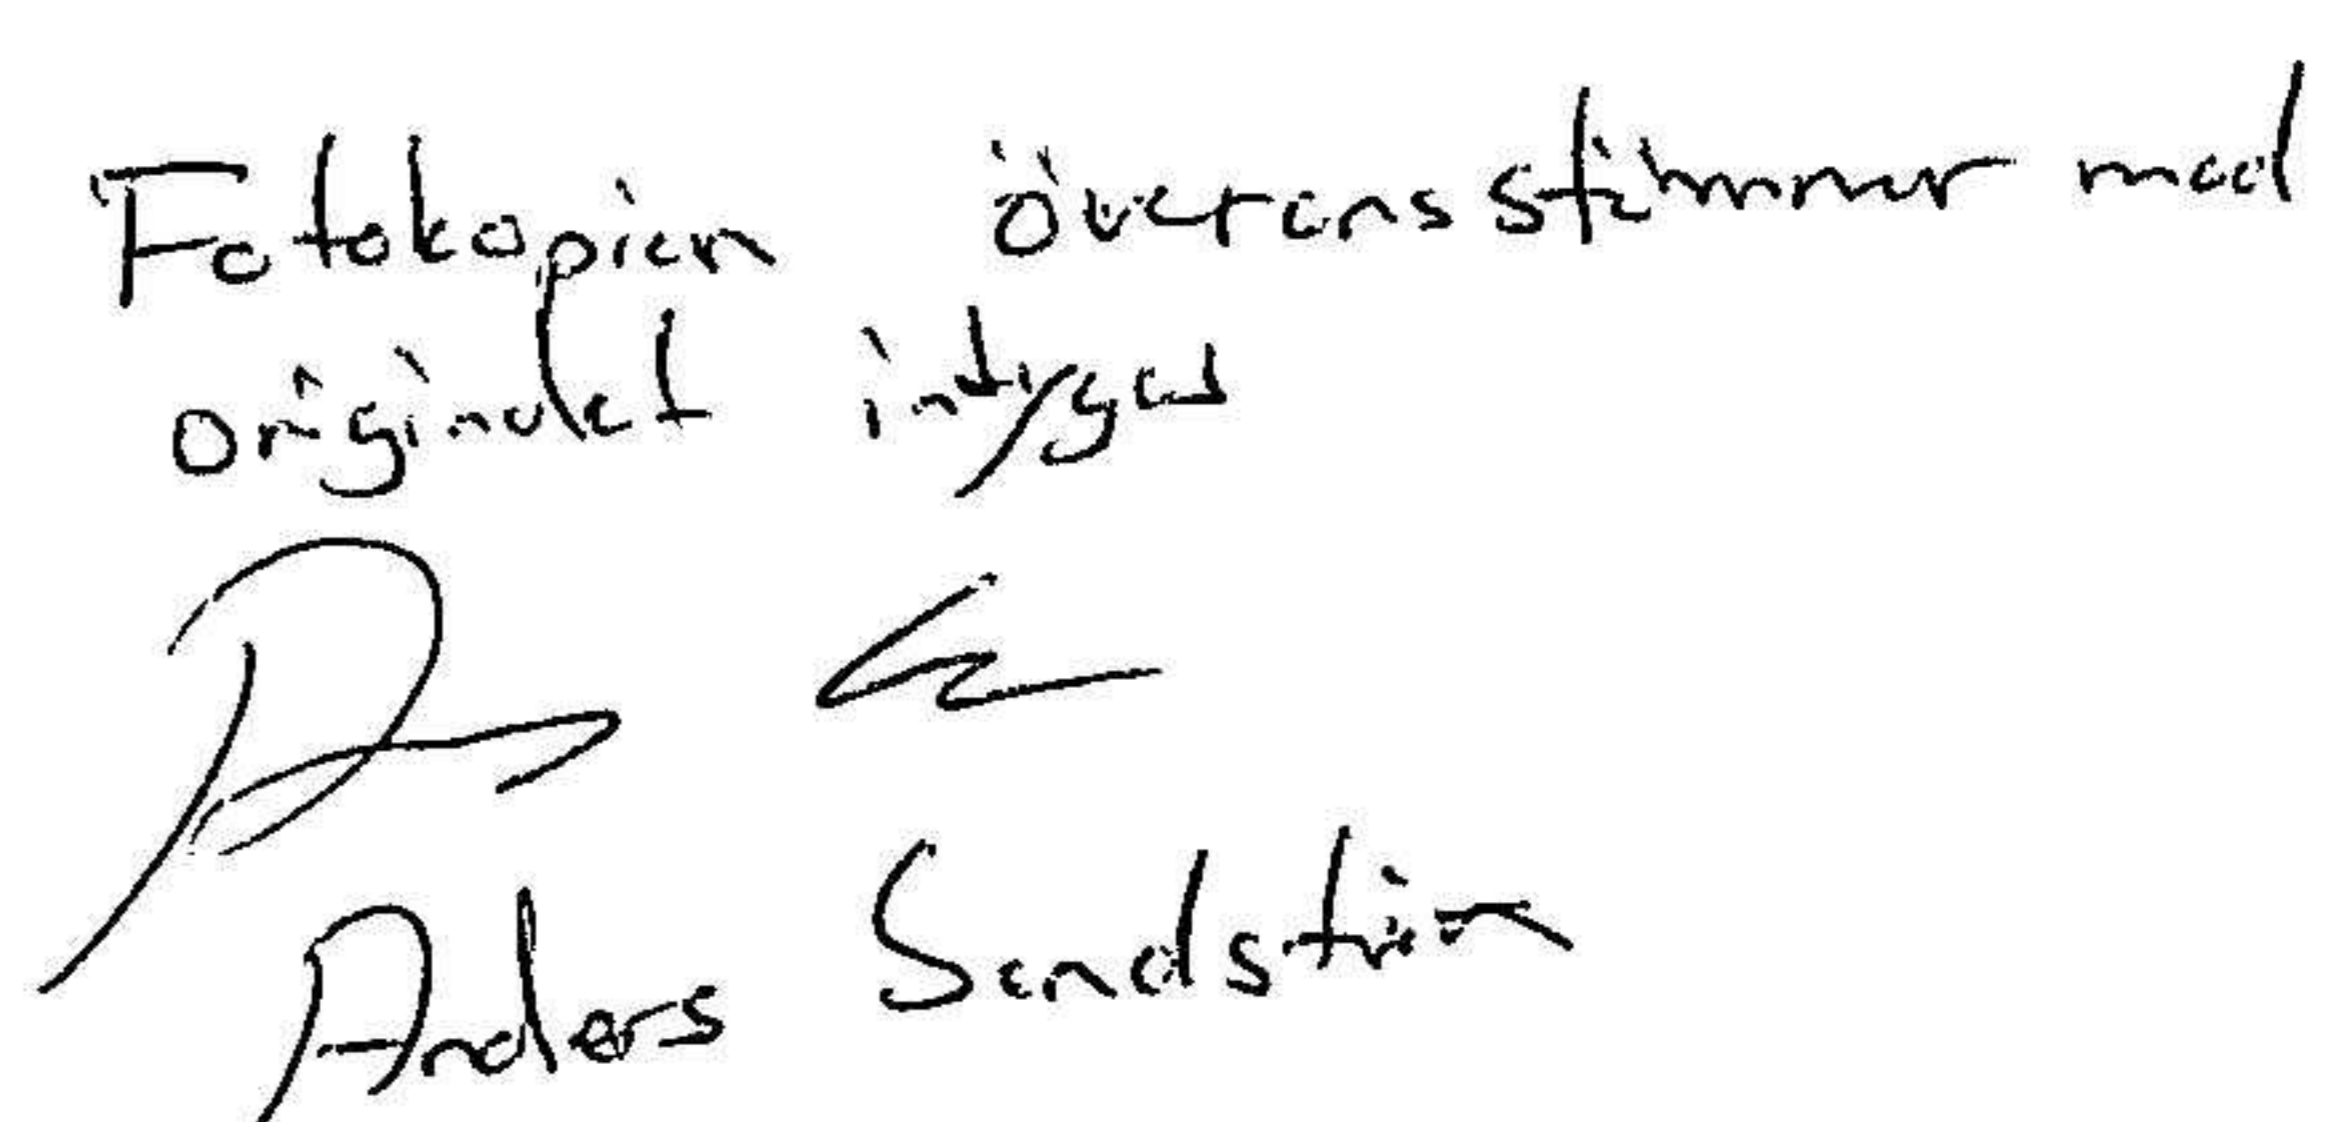 Fotokopien överensstämmer med
originalet intygas
Anders Sandström